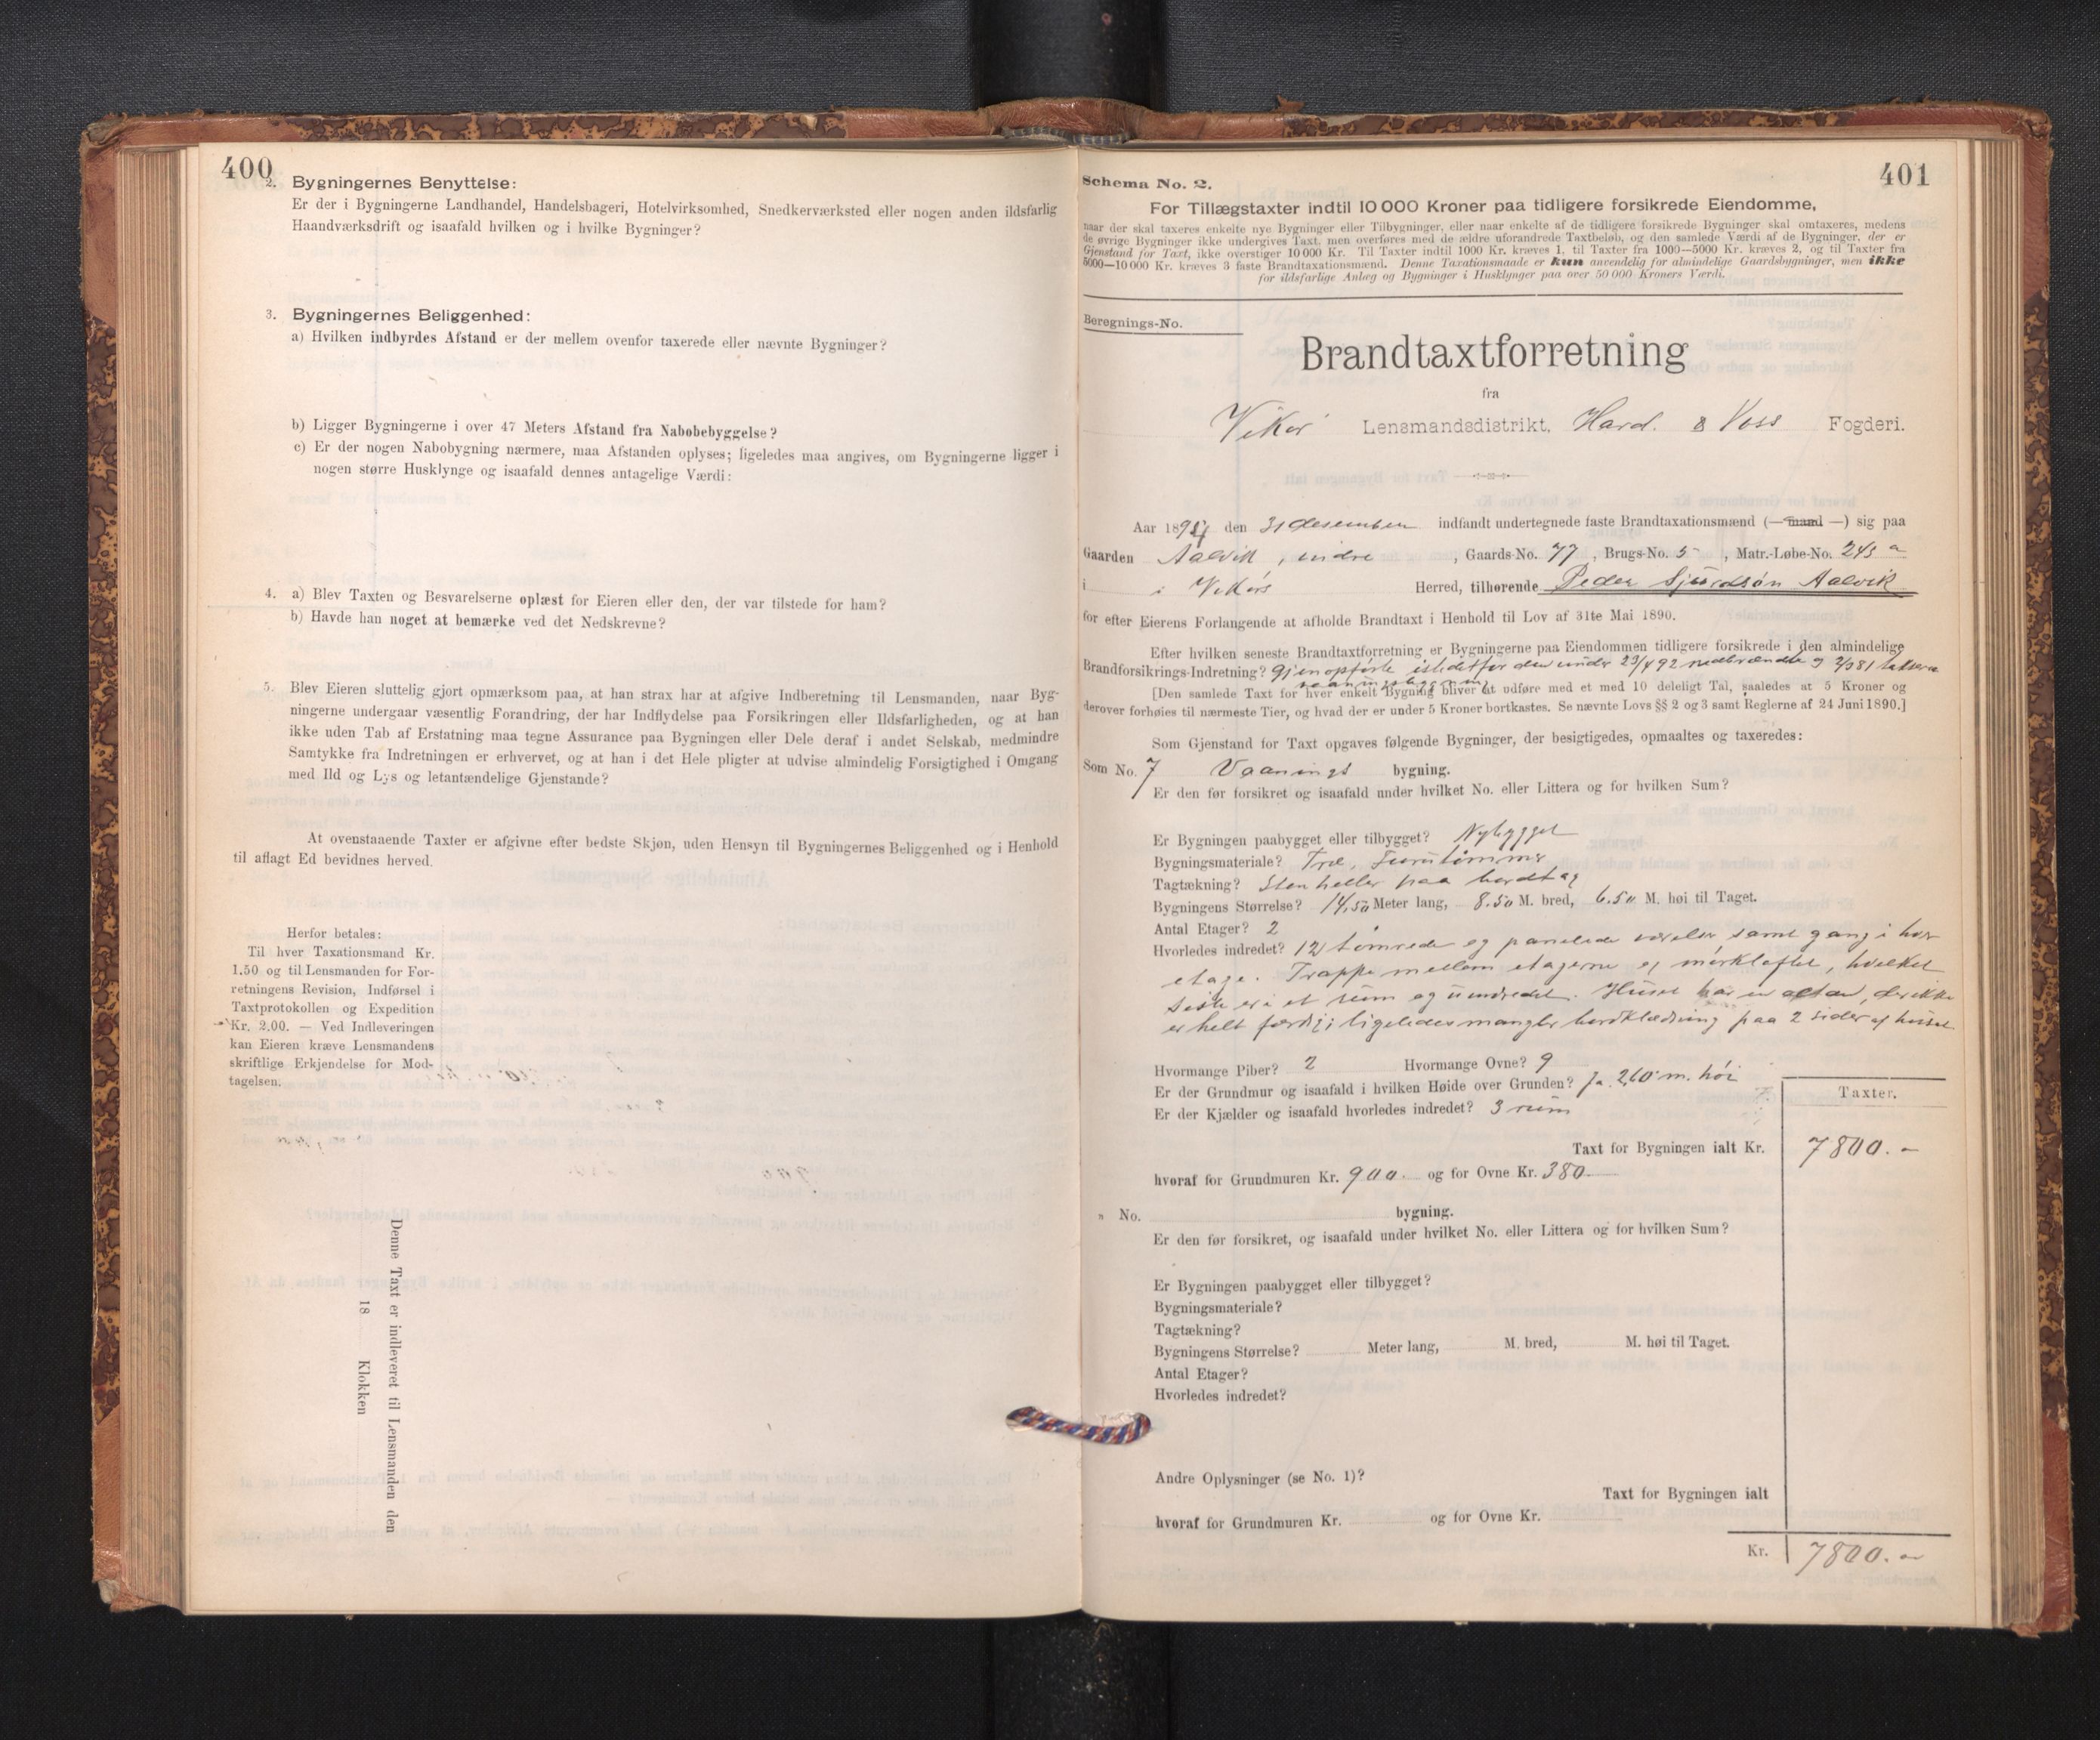 400
2. Bygningernes Benyttelse:
Er der i Bygningerne Landhandel, Handelsbageri, Hotelvirksomhed, Snedkerværksted eller nogen anden ildsfarlig
Haandværksdrift og isaafald hvilken og i hvilke Bygninger?
3. Bygningernes Beliggenhed:
a) Hvilken indbyrdes Afstand er der mellem ovenfor taxerede eller nævnte Bygninger?
b) Ligger Bygningerne i over 47 Meters Afstand fra Nabobebyggelse?
c) Er der nogen Nabobygning nærmere, maa Afstanden oplyses; ligeledes maa angives, om Bygningerne ligger i
nogen større Husklynge og isaafald dennes antagelige Værdi:
4. a) Blev Taxten og Besvarelserne oplæst for Eieren eller den, der var tilstede for ham?
b) Havde han noget at bemærke ved det Nedskrevne?
5. Blev Eieren sluttelig gjort opmærksom paa, at han strax har at afgive Indberetning til Lensmanden, naar Byg-
ningerne undergaar væsentlig Forandring, der har Indflydelse paa Forsikringen eller Ildsfarligheden, og at han
ikke uden Tab af Erstatning maa tegne Assurance paa Bygningen eller Dele deraf i andet Selskab, medmindre
Samtykke fra Indretningen er erhvervet, og at han i det Hele pligter at udvise almindelig Forsigtighed i Omgang
med Ild og Lys og letantændelige Gjenstande?
At ovenstaaende Taxter er afgivne efter bedste Skjøn, uden Hensyn til Bygningernes Beliggenhed og i Henhold
til aflagt Ed bevidnes herved.
Herfor betales:
Til hver Taxationsmand Kr.
1.50 og til Lensmanden for For-
retningens Revision, Indførsel i
Taxtprotokollen og Expedition
Kr. 2.00. — Ved Indleveringen
kan Eieren kræve Lensmandens
skriftlige Erkjendelse for Mod-
tagelsen.
Denne Taxt er indleveret til Lensmanden den
18 Klokken
401
Schema No. 2.
For Tillægstaxter indtil 10 000 Kroner paa tidligere forsikrede Eiendomme,
naar der skal taxeres enkelte nye Bygninger eller Tilbygninger, eller naar enkelte af de tidligere forsikrede Bygninger skal omtaxeres, medens
de øvrige Bygninger ikke undergives Taxt, men overføres med de ældre uforandrede Taxtbeløb, og den samlede Værdi af de Bygninger, der er
Gjenstand for Taxt, ikke overstiger 10 000 Kr. Til Taxter indtil 1000 Kr. kræves 1, til Taxter fra 1000—5000 Kr. kræves 2, og til Taxter fra
5000—10 000 Kr. kræves 3 faste Brandtaxationsmænd. Denne Taxationsmaade er kun anvendelig for almindelige Gaardsbygninger, men ikke
for ildsfarlige Anlæg og Bygninger i Husklynger paa over 50 000 Kroners Værdi.
Beregnings-No.
Brandtaxtforretning
fra
Vikør Lensmandsdistrikt, Hard. & Voss Fogderi.
Aar 189 den 31 desember indfandt undertegnede faste Brandtaxationsmænd (— mand —) sig paa
Gaarden Aalvik, indre, Gaards-No. 77, Brugs-No. 5, Matr.-Løbe-No. 245 a
i i Vikørs Herred, tilhørende Peder Sjurdsøn Aalvik
for efter Eierens Forlangende at afholde Brandtaxt i Henhold til Lov af 31te Mai 1890.
Efter hvilken seneste Brandtaxtforretning er Bygningerne paa Eiendommen tidligere forsikrede i den almindelige
Brandforsikrings-Indretning? Gjenopførte istedetfor den under 23/4 92 nedbrændte
vaaningsbygning
[Den samlede Taxt for hver enkelt Bygning bliver at udføre med et med 10 deleligt Tal, saaledes at 5 Kroner og
derover forhøies til nærmeste Tier, og hvad der er under 5 Kroner bortkastes. Se nævnte Lovs §§ 2 og 3 samt Reglerne af 24 Juni 1890.]
Som Gjenstand for Taxt opgaves følgende Bygninger, der besigtigedes, opmaaltes og taxeredes:
Som No. 7 Vaanings bygning.
Er den før forsikret og isaafald under hvilket No. eller Littera og for hvilken Sum?
Er Bygningen paabygget eller tilbygget? Nybygget
Bygningsmateriale? Træ, Furutømmer
Tagtækning? Stenheller paa bordtag
Bygningens Størrelse? 14.50 Meter lang, 8.50 M. bred, 6.50 M. høi til Taget.
Antal Etager? 2
Hvorledes indredet? 12 tømrede og panelede værelser samt gang i hver
etage. Trappe mellem etagerne og mørkloftet, hvilket
siste er i et rum og uindredet. Huset har en altan, der ikke
er helt færdig; ligeledes mangler bordklædning paa 2 sider af huset.
Hvormange Piber? 2 Hvormange Ovne? 9
Er der Grundmur og isaafald i hvilken Høide over Grunden? Ja. 2,60 m. høi
Er der Kjælder og isaafald hvorledes indredet? 3 rum
Taxter.
Taxt for Bygningen ialt Kr. 7800.-
hvoraf for Grundmuren Kr. 900. og for Ovne Kr. 380.
" No. bygning.
Er den før forsikret, og isaafald under hvilket No. eller Littera og for hvilken Sum?
Er Bygningen paabygget eller tilbygget?
Bygningsmateriale?
Tagtækning?
Bygningens Størrelse? Meter lang, M. bred, M. høi til Taget.
Antal Etager?
Hvorledes indredet?
Andre Oplysninger (se No. 1)?
Taxt for Bygningen ialt
hvoraf for Grundmuren Kr. og for Ovne Kr.
Kr. 7800.-